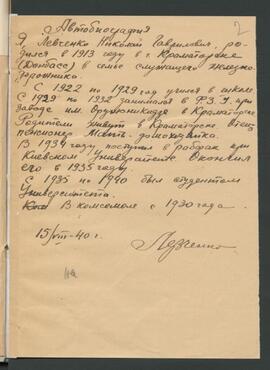 2
Автобиография
Я, Левченко Николай Гаврилович, ро-
дился в 1913 году в г. Краматорске
(Донбасс) в семье служащего железно-
дорожника.
С 1922 по 1929 год учился в школе
С 1929 по 1932 занимался в Ф.З.У. при
заводе им. Орджоникидзе в Краматорске
Родители живут в Краматорске Отец
пенсионер Мать - домохозяйка.
В 1934 году поступил в рабфак при
Киевском Университете Окончил
его в 1935 году.
С 1935 по 1940 был студентом
Университета.
В комсомоле с 1930 года.
15/VIII-40 г.
Левченко